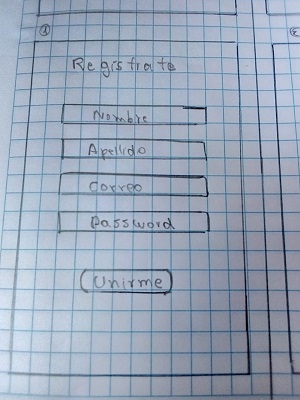 ①
Registrate
Nombre
Apellido
Correo
Password
Unirme